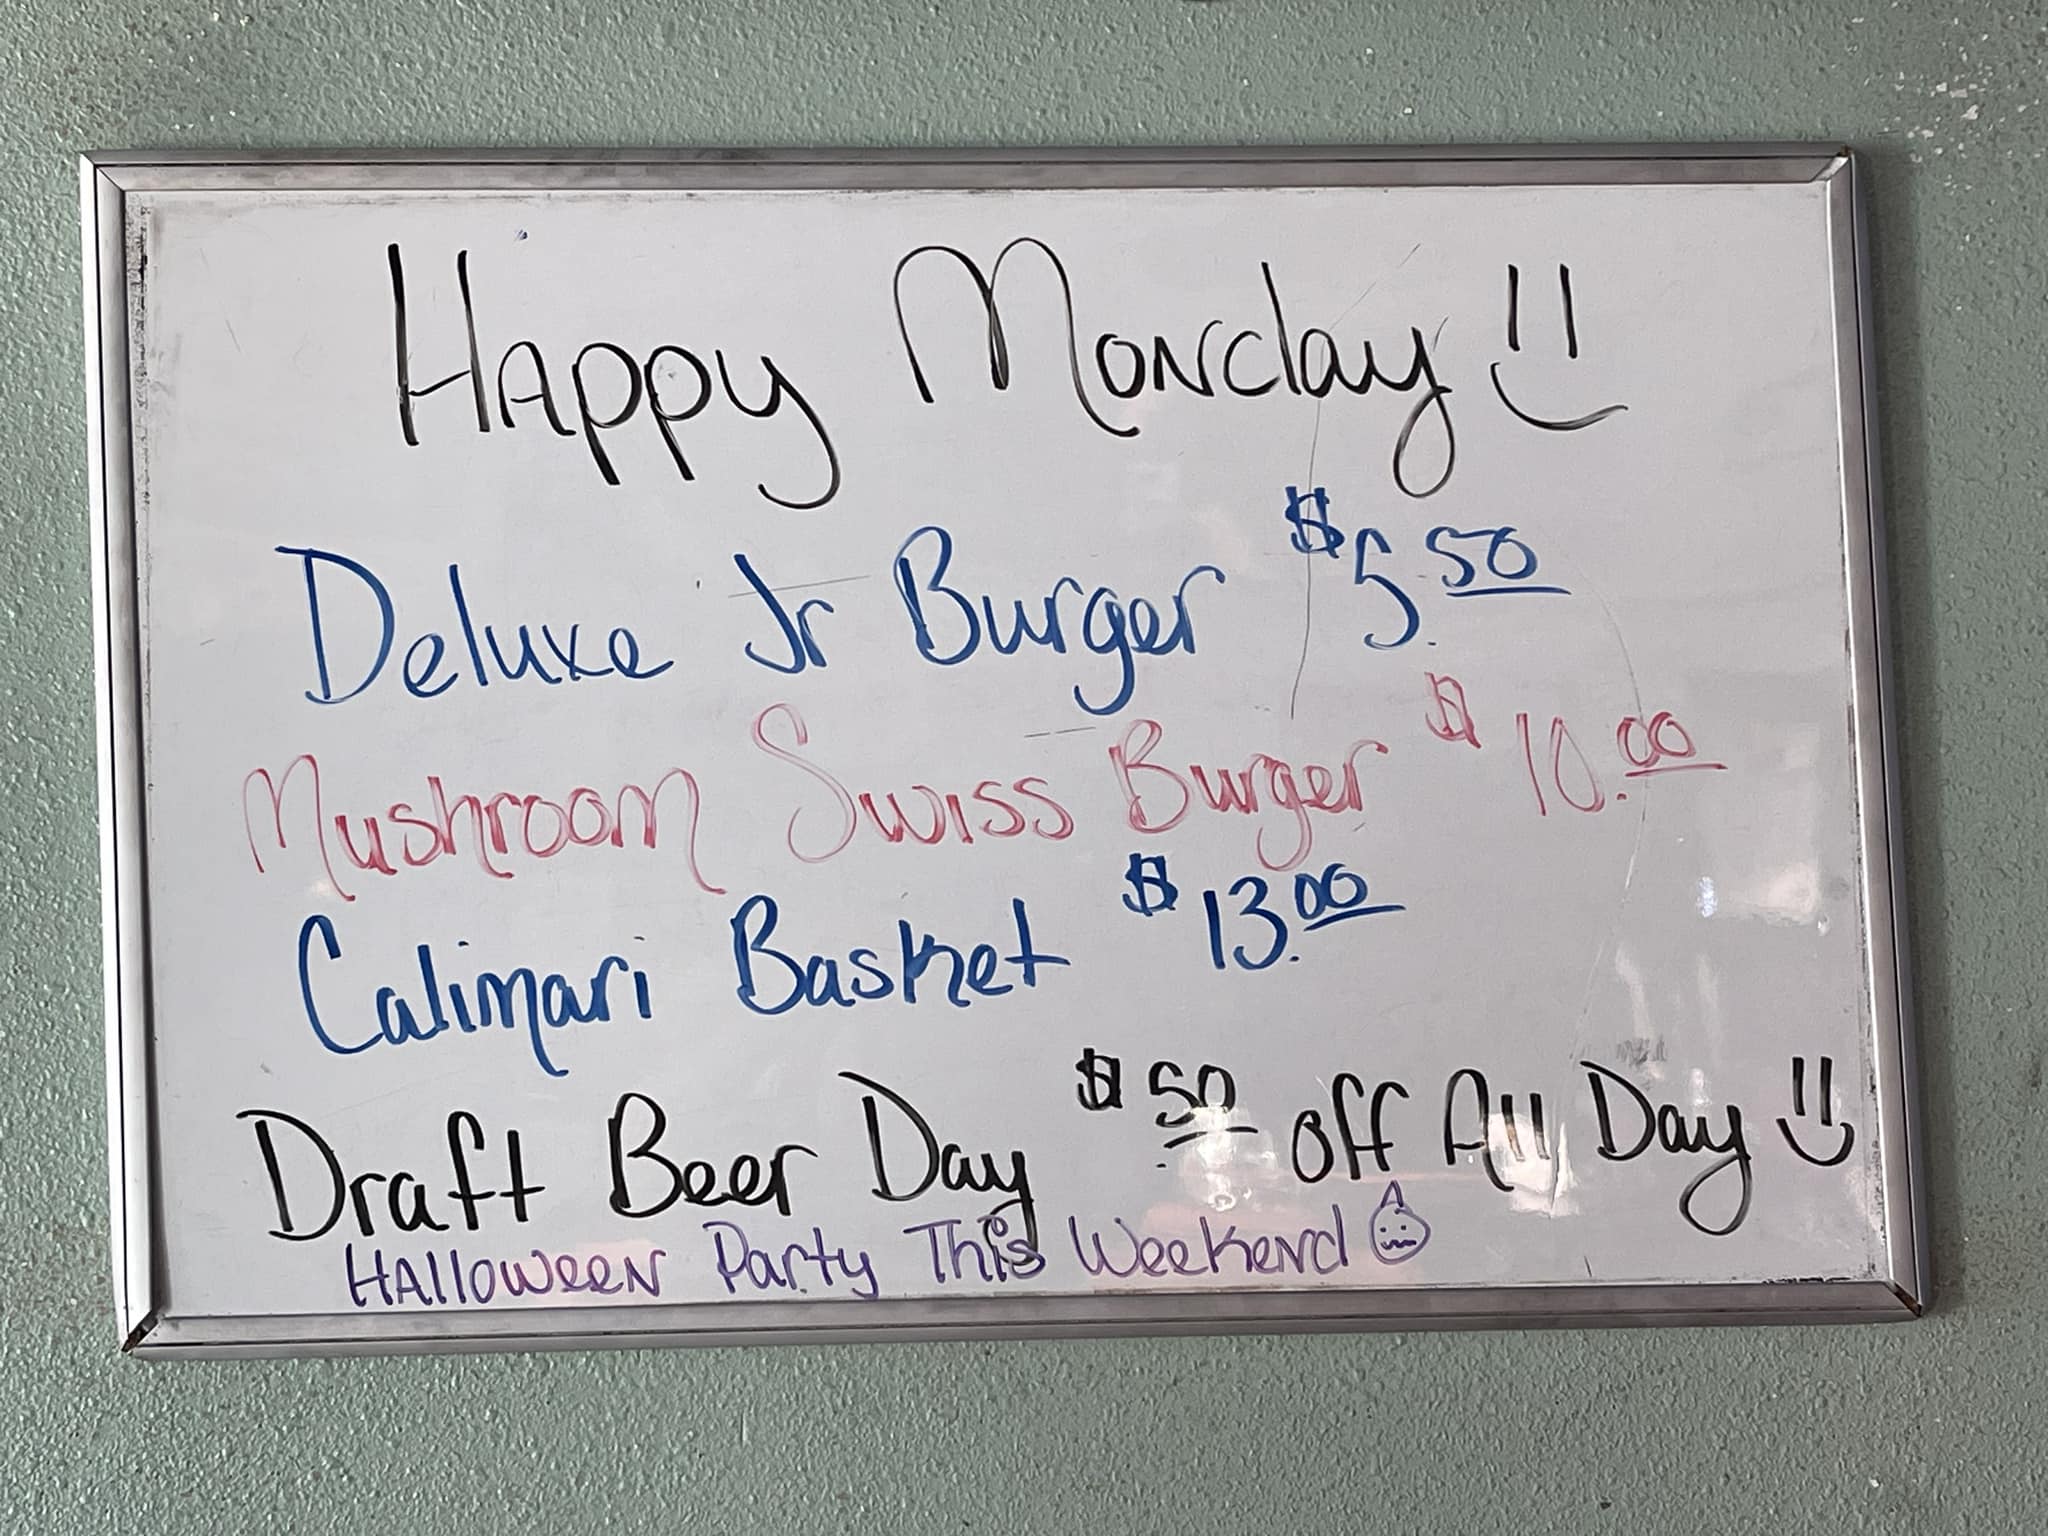 Happy Monday
Deluxe Jr Burger $5.50
Mushroom Swiss Burger $10.00
Calimari Basket $13.00
Draft Beer Day $.50 off All Day
Halloween Party This Weekend